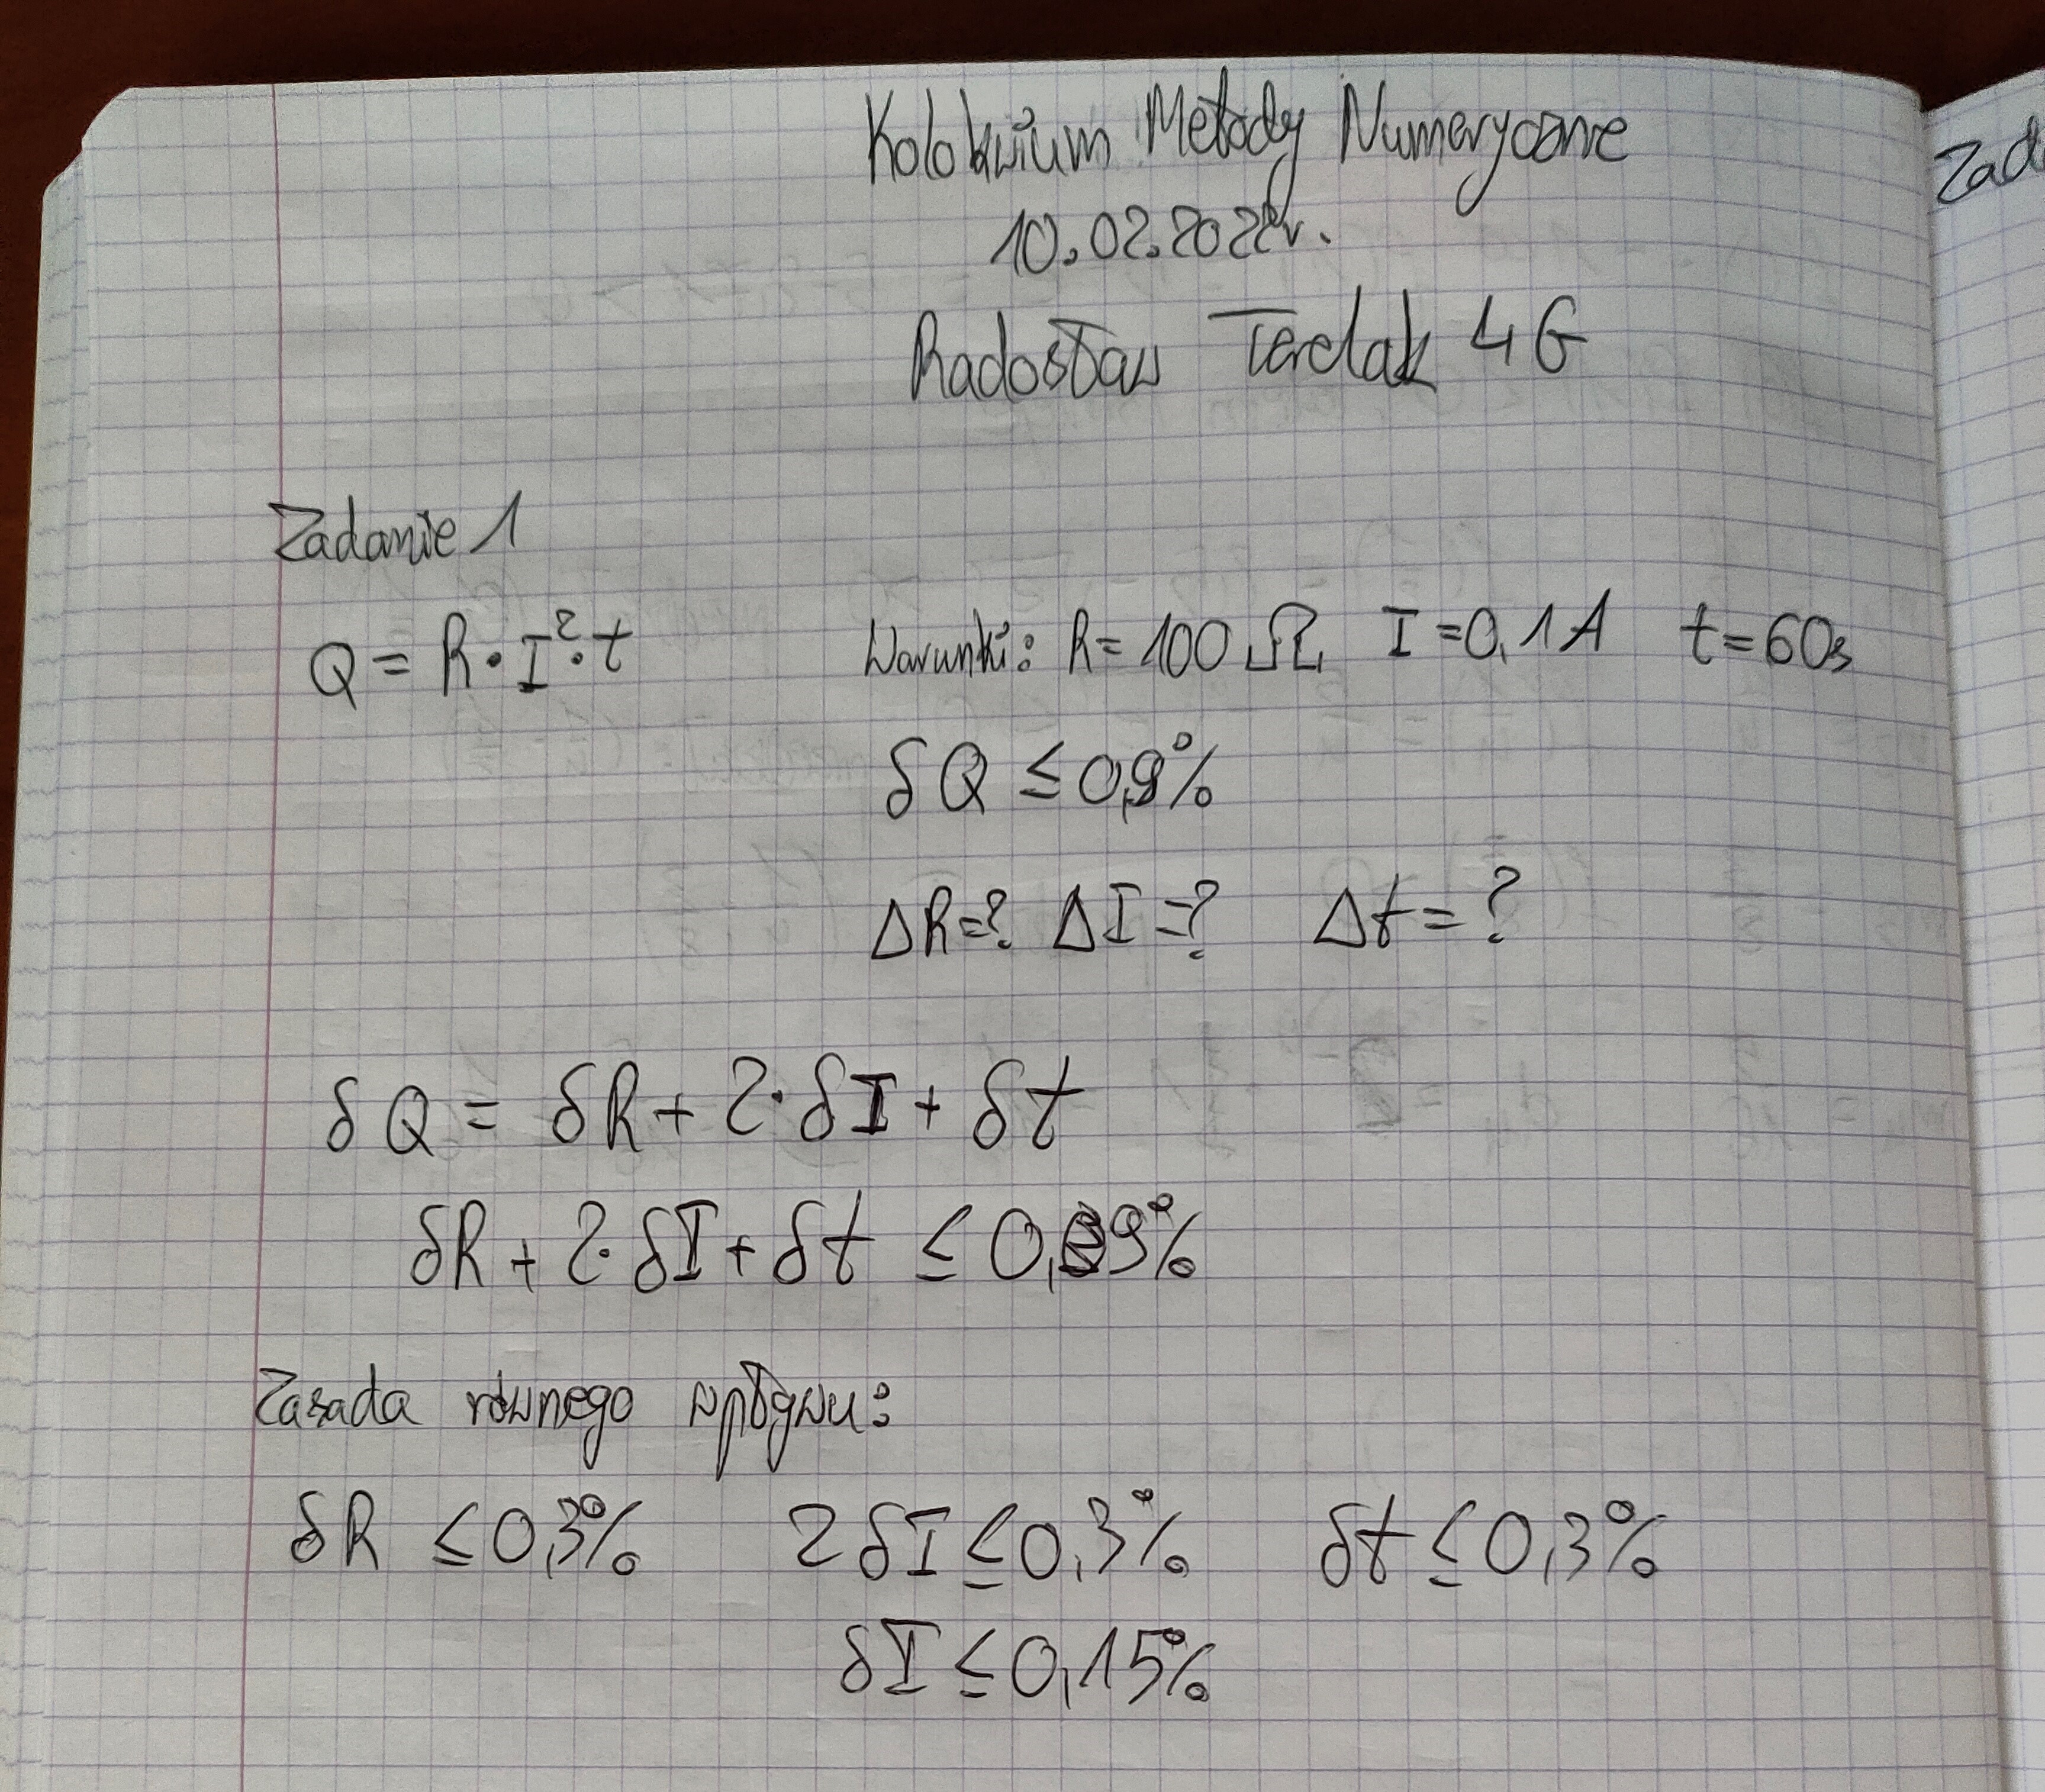 Kolokwium Metody Numeryczne
10.02.2022r.
Radosław Terelak 4G
Zadanie 1
Q = R · I² · t Warunki: R = 100 Ω I = 0,1A t = 60s
δQ ≤ 0,9%
ΔR = ? ΔI = ? Δt = ?
δQ = δR + 2 · δI + δt
δR + 2 · δI + δt ≤ 0,9%
Zasada równego wpływu:
δR ≤ 0,3% 2δI ≤ 0,3% δt ≤ 0,3%
δI ≤ 0,15%
Zad